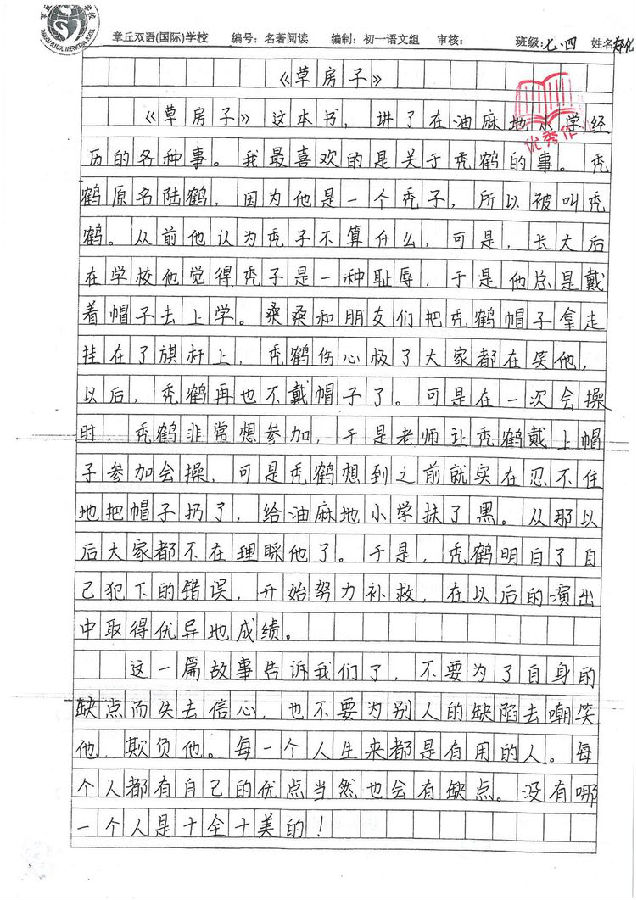 章丘双语(国际)学校 编号：名著阅读 编制：初一语文组 审核： 班级：七.四 姓名
《草房子》
优秀作
《草房子》这本书，讲了在油麻地小学经
历的各种事。我最喜欢的是关于秃鹤的事。秃
鹤原名陆鹤，因为他是一个秃子，所以被叫秃
鹤。从前他认为秃子不算什么，可是，长大后
在学校他觉得秃子是一种耻辱，于是他总是戴
着帽子去上学。桑桑和朋友们把秃鹤帽子拿走
挂在了旗杆上，秃鹤伤心极了大家都在笑他，
以后，秃鹤再也不戴帽子了。可是在一次会操
时 秃鹤非常想参加，于是老师让秃鹤戴上帽
子参加会操，可是秃鹤想到之前就实在忍不住
地把帽子扔了，给油麻地小学抹了黑。从那以
后大家都不在理睬他了。于是，秃鹤明白了自
己犯下的错误，开始努力补救，在以后的演出
中取得优异地成绩。
这一篇故事告诉我们了，不要为了自身的
缺点而失去信心，也不要为别人的缺陷去嘲笑
他，欺负他。每一个人生来都是有用的人。每
个人都有自己的优点当然也会有缺点。没有哪
一个人是十全十美的！